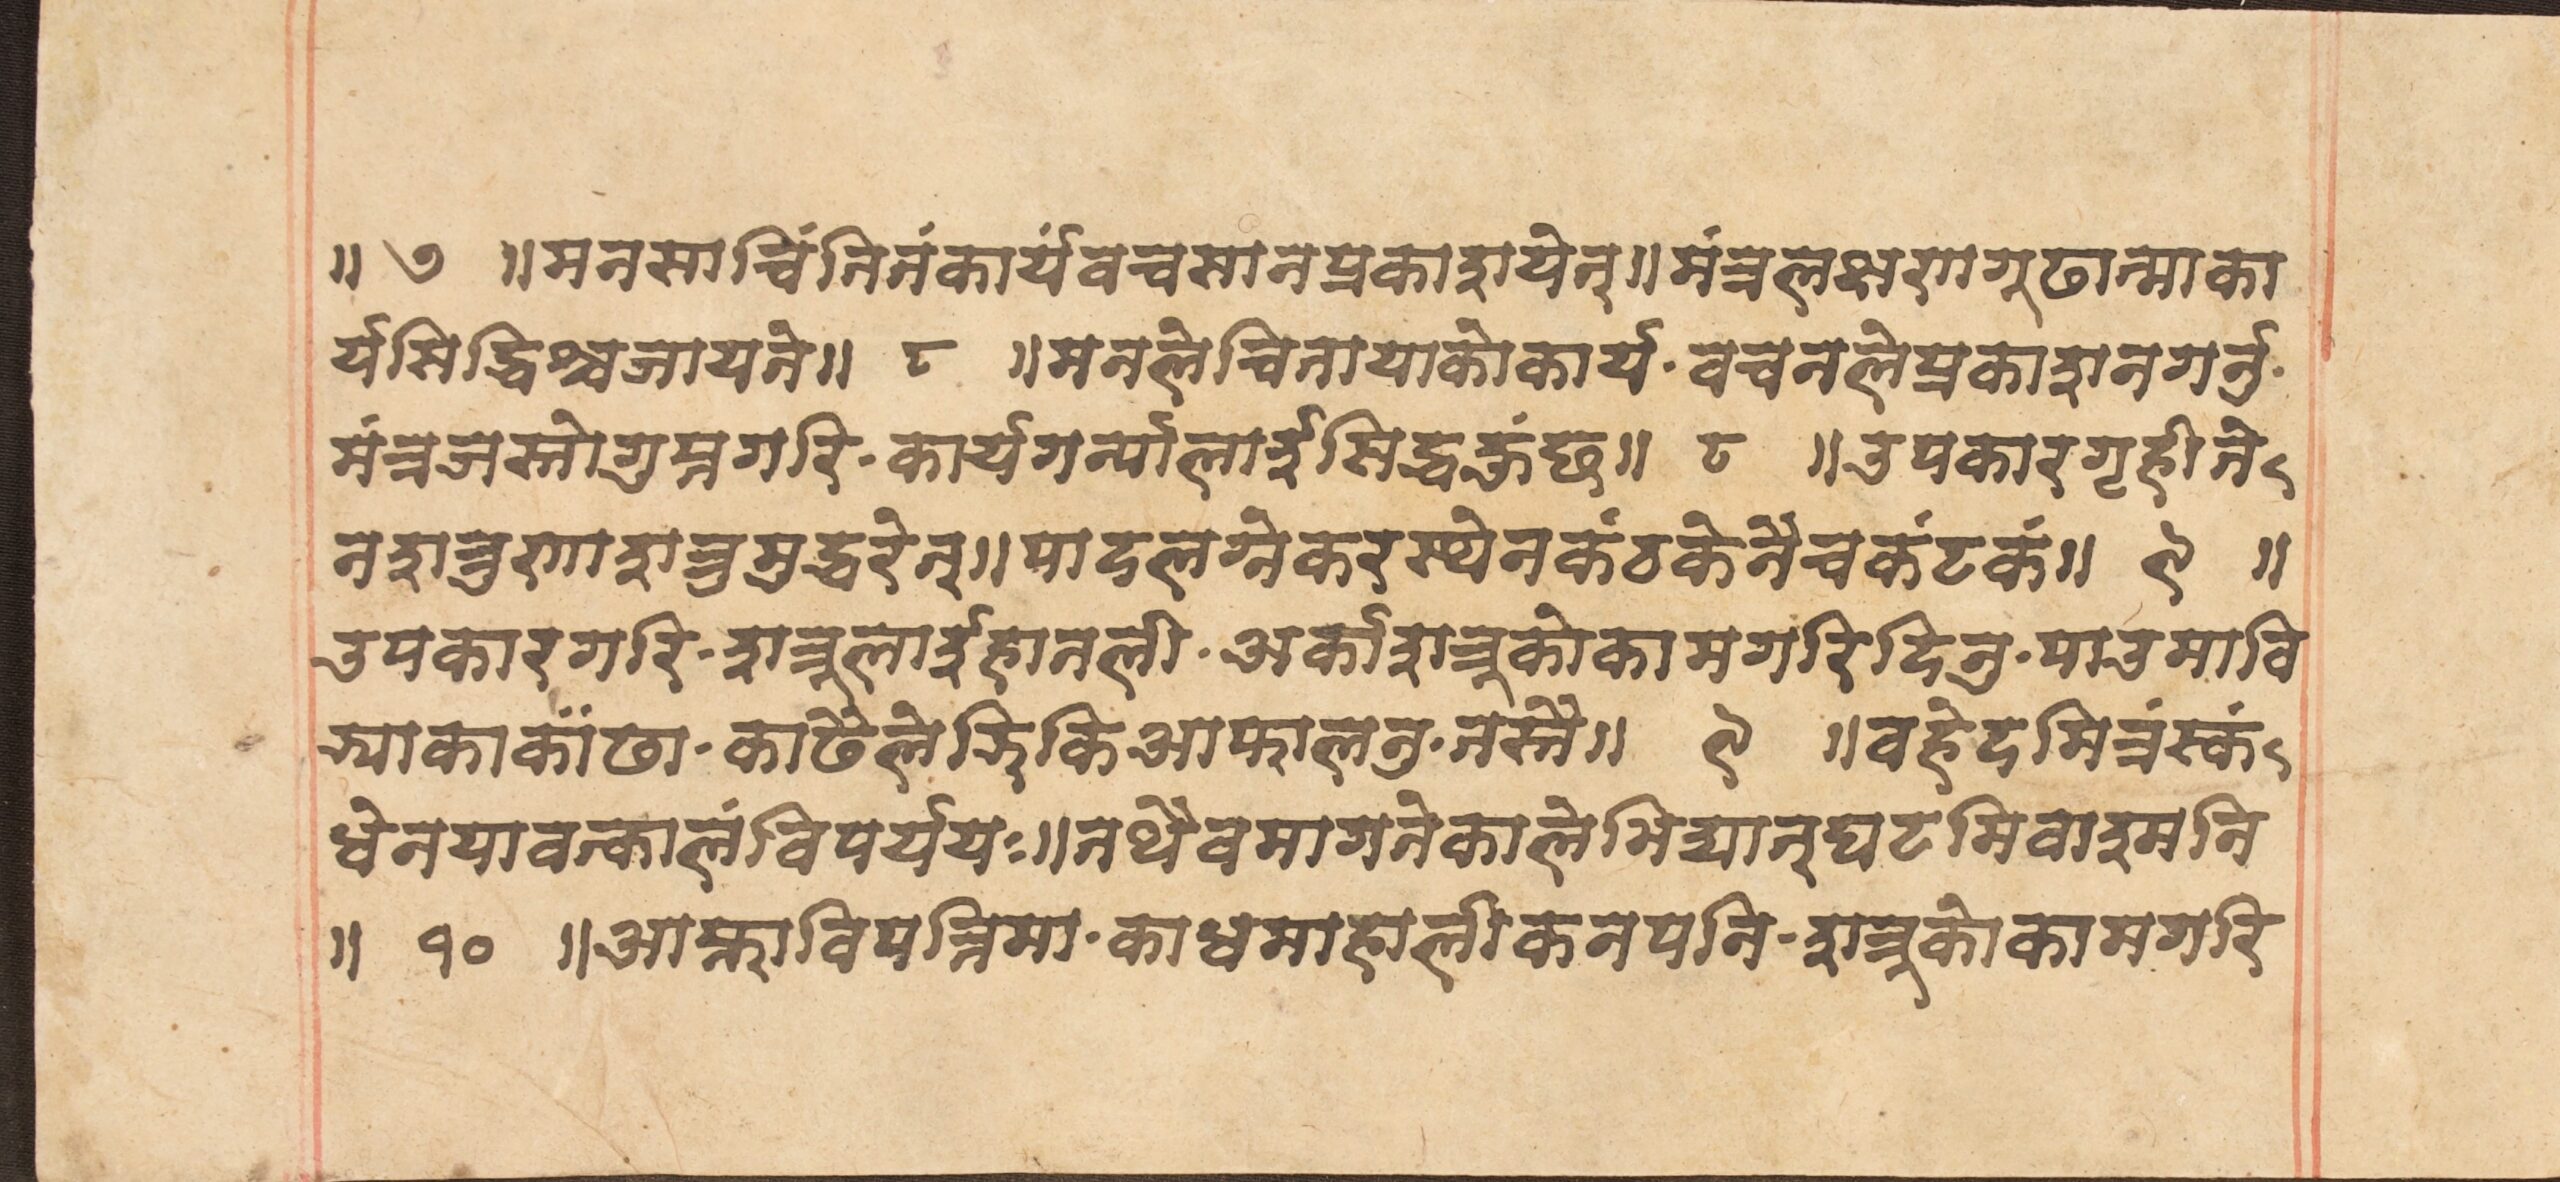 ॥ ७ ॥ मनसाचिंतितंकार्यंवचसानप्रकाशयेत्॥ मंत्रलक्षणगूढात्माका
र्यसिद्धिश्चजायते॥ ८ ॥ मनलेचितायाकोकार्य · वचनलेप्रकाशनगर्नु ·
मंत्रजस्तोगुप्तगरि · कार्यगर्न्यालाईसिद्धहुंछ॥ ८ ॥ उपकारगृहीते
नशत्रुणाशत्रुमुद्धरेत्॥ पादलग्नेकरस्थेनकंठकेनैचकंटकं॥ ९ ॥
उपकारगरि · शत्रूलाईहातली · अर्काशत्रूकोकामगरिदिनु · पाउमावि
झ्याकाकाँढा · काढैलेझिकिआफालनु · तस्तै॥ ९ ॥ वहेदमित्रंस्कं
धेनयावत्कालंविपर्ययः॥ तथैवमागतेकालेभिद्यात्घटमिवाश्मनि
॥ १० ॥ आफ्नाविपत्तिमा · काधमाहालीकनपनि · शत्रूकोकामगरि